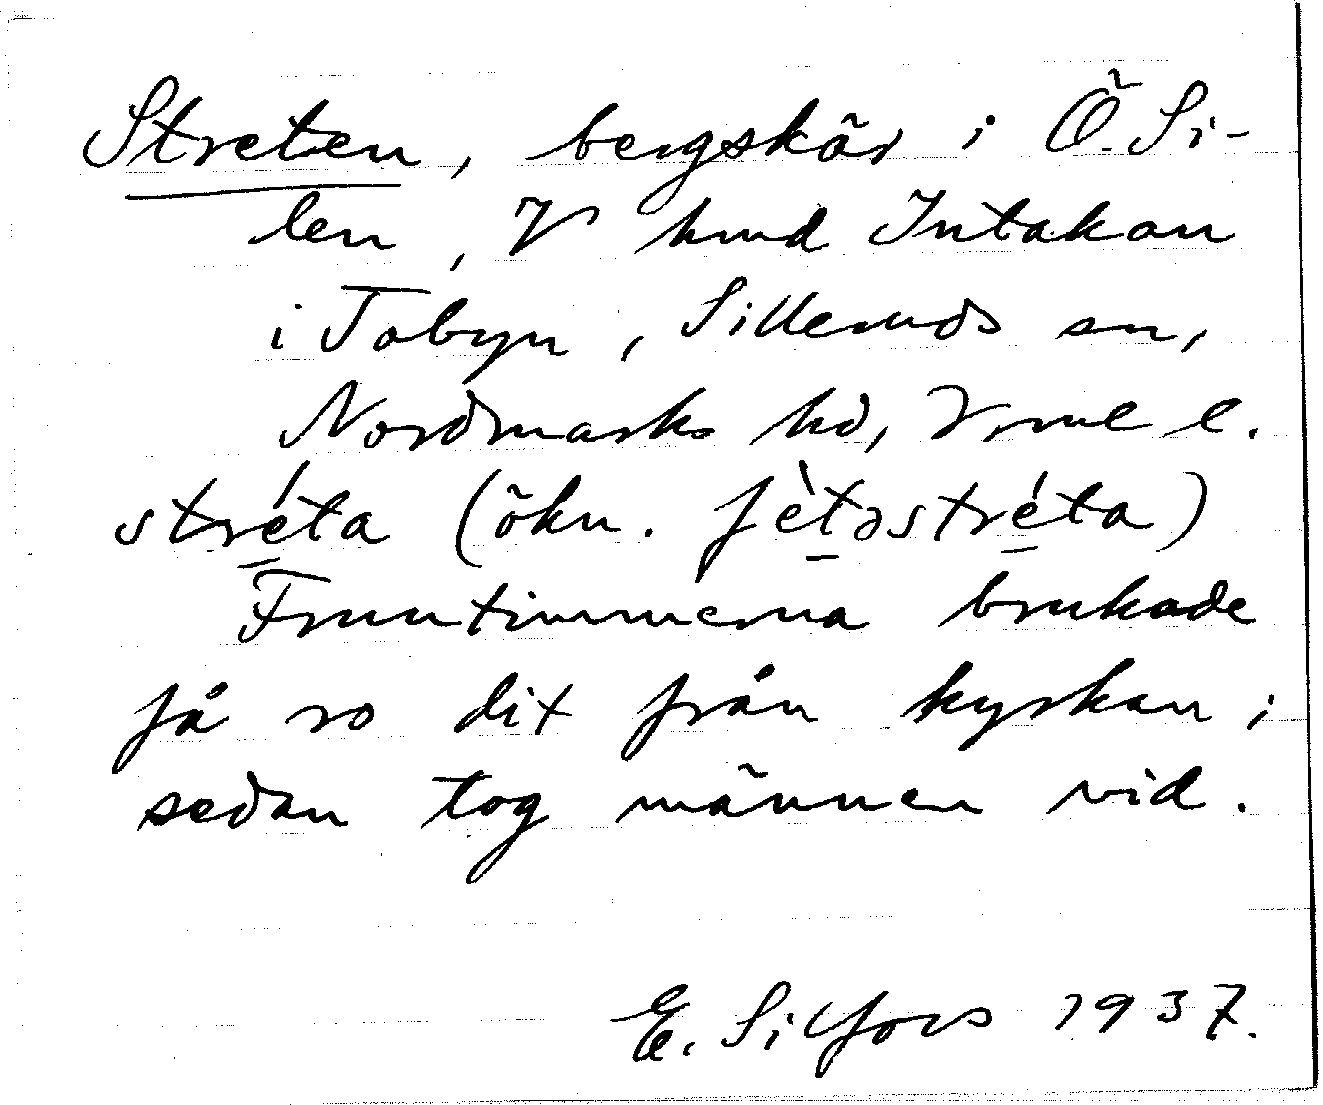 Streten, bergskär i Ö. Si-
len, V hmd Intakan
i Tobyn, Silleruds sn,
Nordmarks hd, Vrml l.
stréta (ökn. fètəstréta)
Fruntimmerna brukade
få ro dit från kyrkan;
sedan tog männen vid.
E. Silfors 1937.